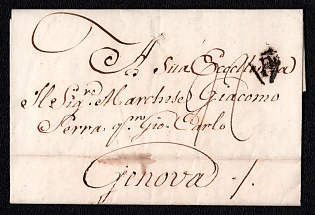 A Sua Eccellenza
Il Sig.re Marchese Giacomo
Serra q.m Gio: Carlo
Genova